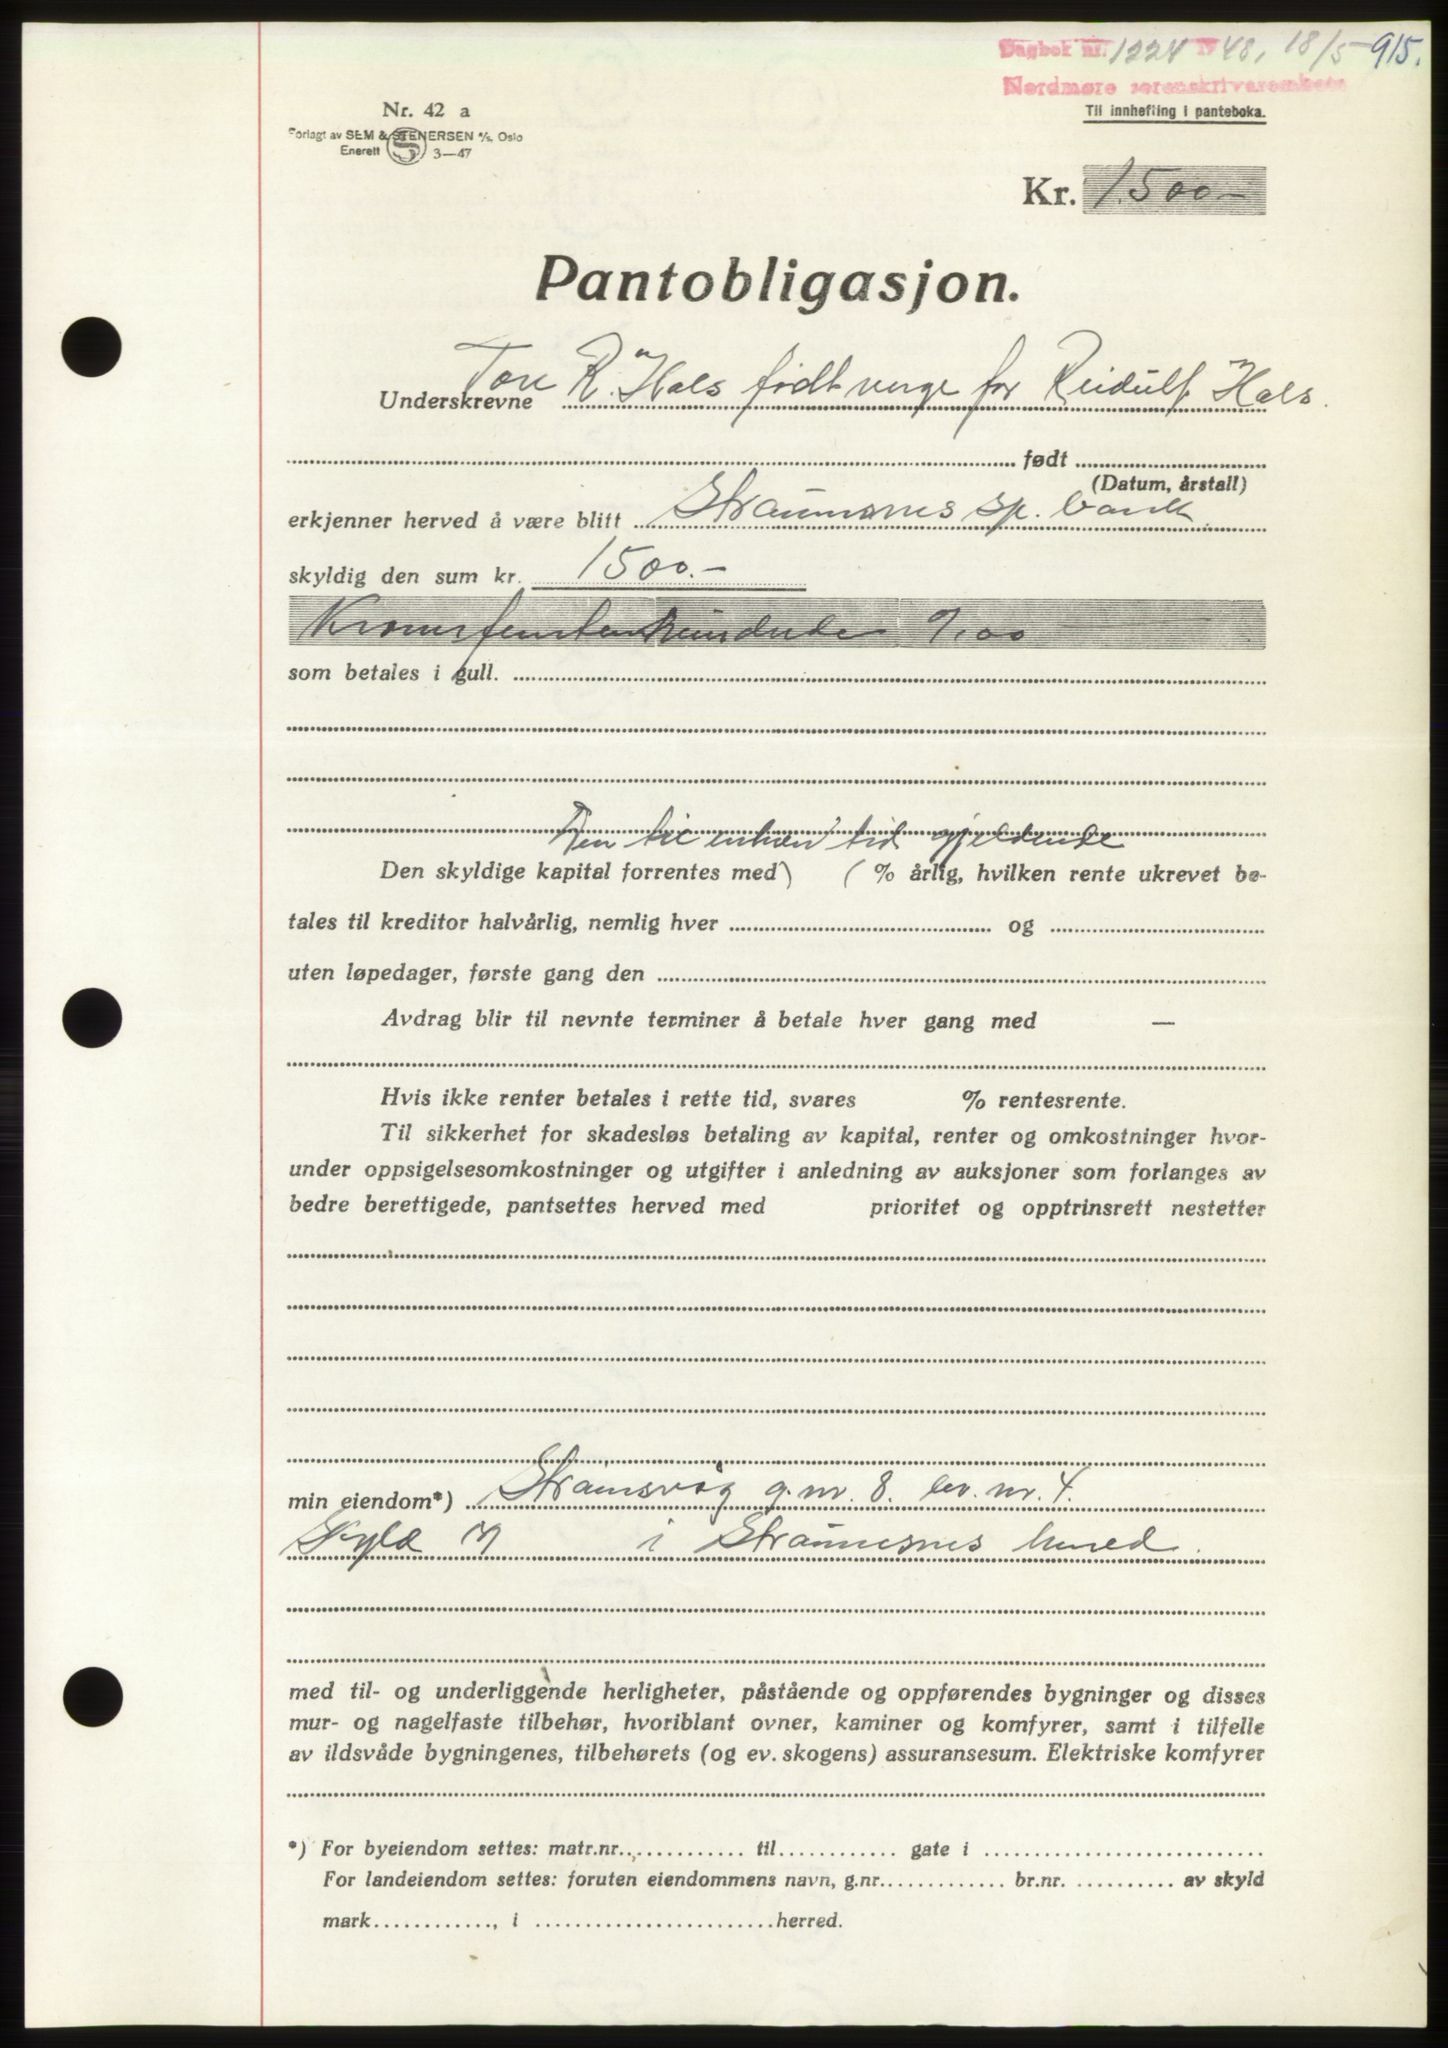 Dagbok nr. 1224 1948, 18/5 915.
Nordmøre sorenskriverembete
Nr. 42 a
Til innhefting i panteboka.
Forlagt av SEM & STENERSEN A/S, Oslo
Enerett S 3—47
Kr. 1.500-
Pantobligasjon.
Underskrevne Tore R. Hals født verge for Reidulf Hals.
født
(Datum, årstall)
erkjenner herved å være blitt Straumsnes sp. bank
skyldig den sum kr. 1500.-
Kroner femtenhundrede 0/00
som betales i gull.
Den til enhver tid gjeldende
Den skyldige kapital forrentes med) (% årlig, hvilken rente ukrevet be-
tales til kreditor halvårlig, nemlig hver og
uten løpedager, første gang den
Avdrag blir til nevnte terminer å betale hver gang med —
Hvis ikke renter betales i rette tid, svares % rentesrente.
Til sikkerhet for skadesløs betaling av kapital, renter og omkostninger hvor-
under oppsigelsesomkostninger og utgifter i anledning av auksjoner som forlanges av
bedre berettigede, pantsettes herved med prioritet og opptrinsrett nestetter
min eiendom*) Straumsvåg g.nr. 8. br. nr. 4.
Skyld M i Straumsnes herred.
med til- og underliggende herligheter, påstående og oppførendes bygninger og disses
mur- og nagelfaste tilbehør, hvoriblant ovner, kaminer og komfyrer, samt i tilfelle
av ildsvåde bygningenes, tilbehørets (og ev. skogens) assuransesum. Elektriske komfyrer
*) For byeiendom settes: matr.nr. til gate i
For landeiendom settes: foruten eiendommens navn, g.nr. br.nr. av skyld
mark, i herred.